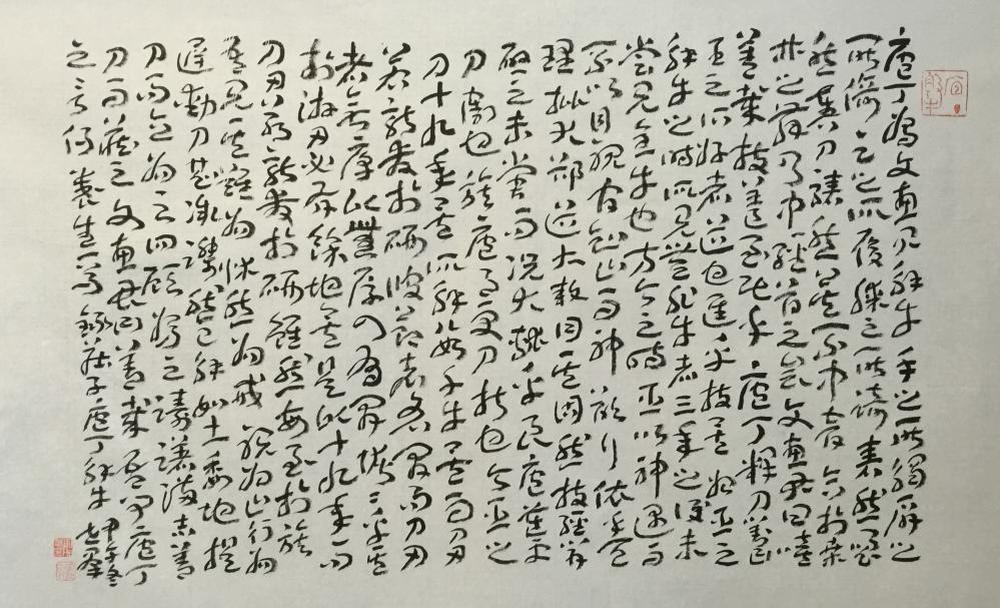 庖丁為文惠君解牛手之所觸肩之
所倚足之所履膝之所踦砉然嚮
然奏刀騞然莫不中音合於桑
林之舞乃中經首之會文惠君曰嘻
善哉技蓋至此乎庖丁釋刀對曰
臣之所好者道也進乎技矣始臣之
解牛之時所見無非牛者三年之後未
嘗見全牛也方今之時臣以神遇而
不以目視官知止而神欲行依乎天
理批大郤道大窾因其固然技經肯
綮之未嘗而況大軱乎良庖歲更
刀割也族庖月更刀折也今臣之
刀十九年矣所解數千牛矣而刀刃
若新發於硎彼節者有間而刀刃
者無厚以無厚入有間恢恢乎其
於游刃必有餘地矣是以十九年而
刀刃若新發於硎雖然每至於族
吾見其難為怵然為戒視為止行為
遲動刀甚微謋然已解如土委地提
刀而立為之四顧為之躊躇滿志善
刀而藏之文惠君曰善哉吾聞庖丁
之言得養生焉 錄莊子庖丁解牛
甲午冬